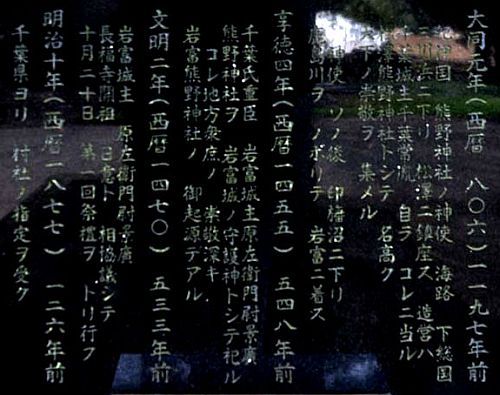 大同元年(西暦 八〇六)一一九七年前
紀伊国 熊野神社ノ神使 海路 下総国
三川浜ニ下リ 松澤ニ鎮座ス 造営ハ
千葉城主千葉常胤 自ラ コレニ当ル
松澤熊野神社トシテ 名高ク
天下ノ崇敬ヲ 集メル
神使 ソノ後 印旛沼ニ下リ
鹿島川ヲ ソノボリテ 岩富ニ着ス
享徳四年(西暦一四五五) 五四八年前
千葉氏重臣 岩富城主原左衛門尉景廣
熊野神社ヲ 岩富城ノ守護神トシテ祀ル
コレ地方衆庶ノ 崇敬深キ
岩富熊野神社ノ 御起源デアル
文明二年(西暦一四七〇) 五三三年前
岩富城主 原左衛門尉景廣
長福寺開祖 日意ト 相協議シテ
十月二十日 第一回祭禮ヲ トリ行フ
明治十年(西暦一八七七) 一二六年前
千葉県ヨリ 村社ノ指定ヲ受ク